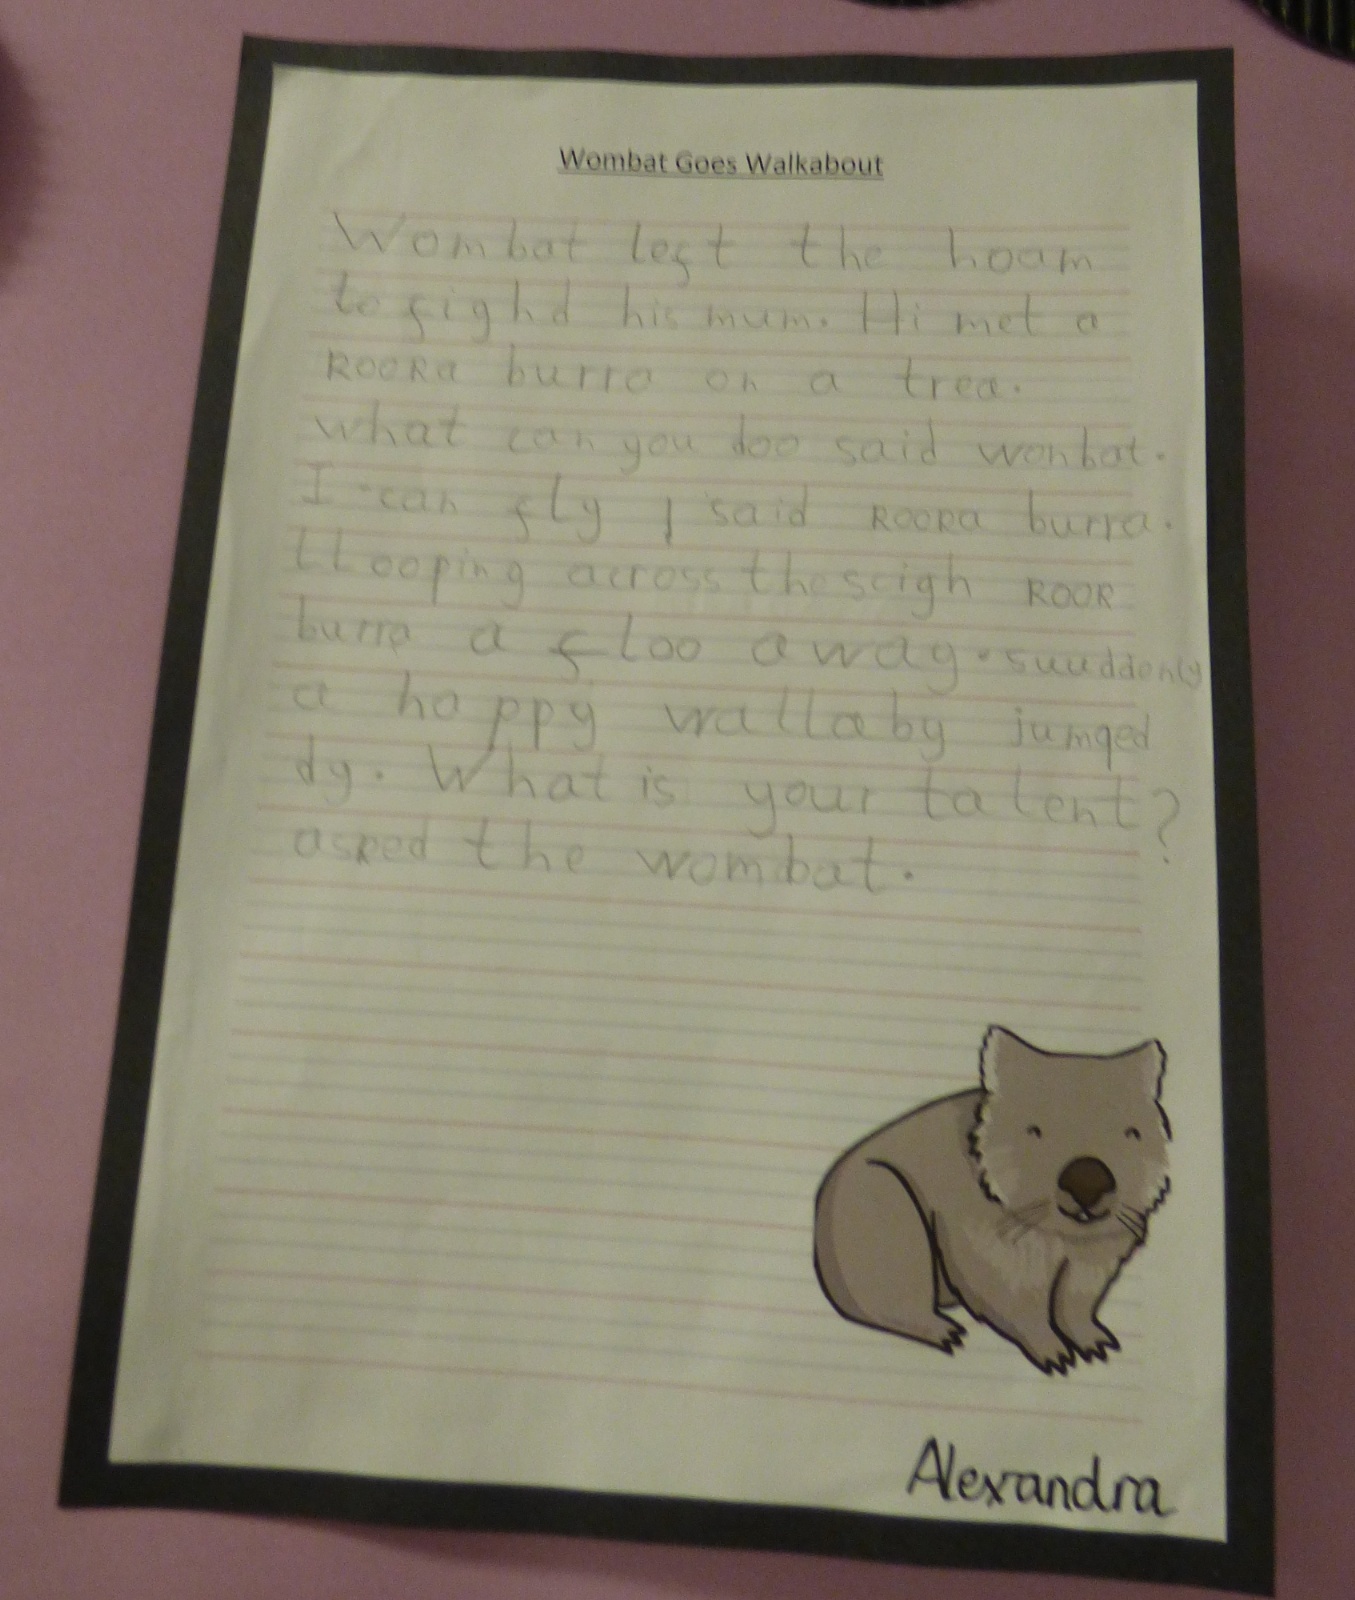 Wombat Goes Walkabout
Wombat left the hoam
to fighd his mum. Hi met a
ROORa burra on a trea.
what can you doo said wonbat.
I can fly I said ROORa burra.
LLooping across the scigh ROOR
burra a floo away. suuddonly
a happy wallaby jumqed
dy. What is your talent?
asked the wombat.
Alexandra